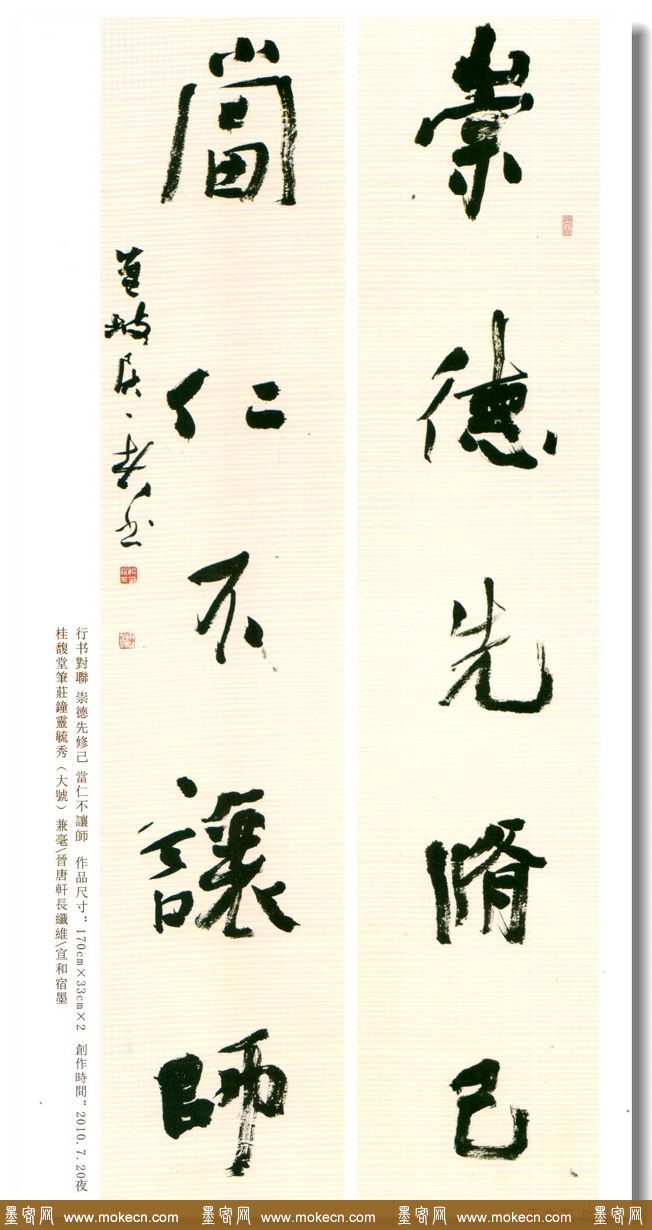 崇德先脩己
當仁不讓師
行书對聯 崇德先修己 當仁不讓師 作品尺寸：170cm×33cm×2 創作時間：2010.7.20夜
桂馥堂筆莊鐘靈毓秀（大號）兼毫\晉唐軒長纖維\宣和宿墨
墨客网 www.mokecn.com 墨客网 www.mokecn.com 墨客网 www.mokecn.com 墨客网